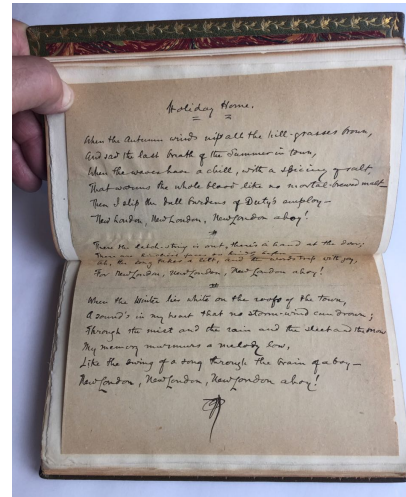 Holiday Home.
When the Autumn winds nip all the hill-grasses brown,
And sad the last breath of the Summer in town,
When the waves have a chill, with a spicing of salt,
That warms the whole blood like no mortal-brewed malt—
Then I slip the dull burdens of Duty's employ—
New London, New London, New London ahoy!
There the latch-string is out, there's a hand at the door;
Oh, the song takes a lilt, and the words trip with joy,
For New London, New London, New London ahoy!
When the Winter lies white on the roofs of the town,
A sound's in my heart that no storm-wind can drown;
Through the mist and the rain and the sleet and the snow
My memory murmurs a melody low,
Like the swing of a song through the brain of a boy—
New London, New London, New London ahoy!